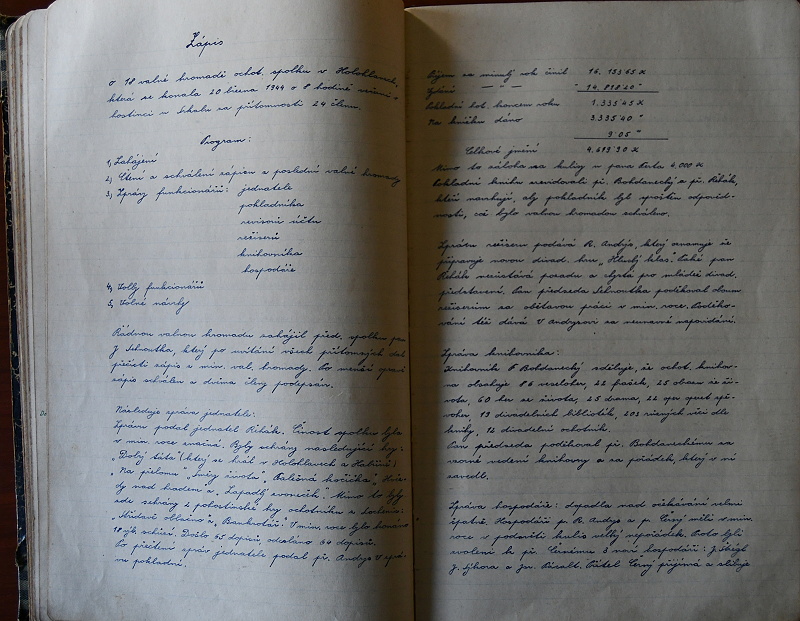 Zápis
o 18 valné hromadě ochot. spolku v Holohlavech,
která se konala 20 března 1944 o 8 hodině
hostinci u Sehalu za přítomnosti 24 členů.
Program:
1, Zahájení
2, Čtení a schválení zápisu o poslední valné hromady
3, Zprávy funkcionářů: jednatele
pokladníka
revisorů účtů
režisérů
knihovníka
hospodáře
4, Volby funkcionářů
5, Volné návrhy
Řádnou valnou hromadu zahájil před. spolku pan
J. Sehnoutka, který po uvítání všech přítomných dal
přečísti zápis z min. val. hromady. Po menší
zápis schválen a dvěma členy podepsán.
Následuje zpráva jednatele:
Zprávu podal jednatel Řihák. Činost spolku byla
v min. roce značná. Byly sehrány následující hry:
"Dobý táta" (který se hrál v Holohlavech a
"Na pielomu" životu", "Báječná kočička",
nad hradem" a "Zapadlý zvoneček". Mimo to byly
zde sehrány 2 pohostinské hry ochotníků z
"Střídavě oblačno" a "Bankotáři". V min. roce bylo konáno
18 výb. schůzí. Došlo 45 dopisů, odesláno 64 dopisů.
Po přečtení zpráv jednatele podal př. Andrys V
vu pokladní.
Příjem za minulý rok činil 16.153.65 K
Vydání — " — " 14.818.20 "
Pokladní hot. koncem roku 1.335.45 K
Na knížku dáno 3.335.40 "
9.05 "
Celkové jmění 4.679.90 K
Mimo to záloha za kulisy u pana 4.000 K
Pokladní knihu revidovali př. Bohdanecký a př. Řihák,
kteří navrhují, aby pokladník byl zproštěn odpověd-
nosti, což bylo valnou hromadou schváleno.
Zprávu režisérů podává R. Andrys, který oznamuje že
připravuje novou divad. hru, "Hlasitý hlas". Také pan
Řihák nezůstává pozadu a chystá pro mládež divad.
představení. Pan předseda Sehnoutka poděkoval oboum
režisérům za obětavou práci v min. roce. Poděko-
vání též dává V Andrysovi za neunavné napovídání.
Zpráva knihovníka:
Knihovník F Bohdanecký sděluje, že ochot. knihov-
na obsahuje 86 veseloher, 22 frašek, 25 obrazů ze ži-
vota, 60 her ze života, 25 drama, 22 oper operet zpě-
voher, 13 divadelních biblioték, 203 různých věcí dle
knihy, 12 divadelní ochotník.
Pan předseda poděkoval př. Bohdaneckému za
vzorné vedení knihovny a za pořádek, který v ní
zavedl.
Zpráva hospodáře: dopadla nad očekávání velmi
špatně. Hospodáři p. R. Andrys a p. Černý měli v min.
roce v podsvětí kulis velký nepořádek. Proto byli
zvoleni k p. Černému 3 noví hospodáři: J.
J. Sýkora a Jar. Přítel Černý přijímá a slibuje